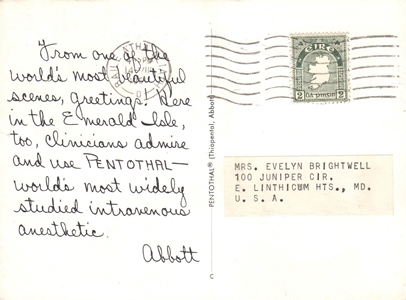 From one of the
world's most beautiful
scenes, greetings. Here
in the Emerald Isle,
too, clinicians admire
and use PENTOTHAL—
world's most widely
studied intravenous
anesthetic.
Abbott
PENTOTHAL® (Thiopental, Abbott)
C
EIRE
2 2
MRS. EVELYN BRIGHTWELL
100 JUNIPER CIR.
E. LINTHICUM HTS., MD.
U. S. A.